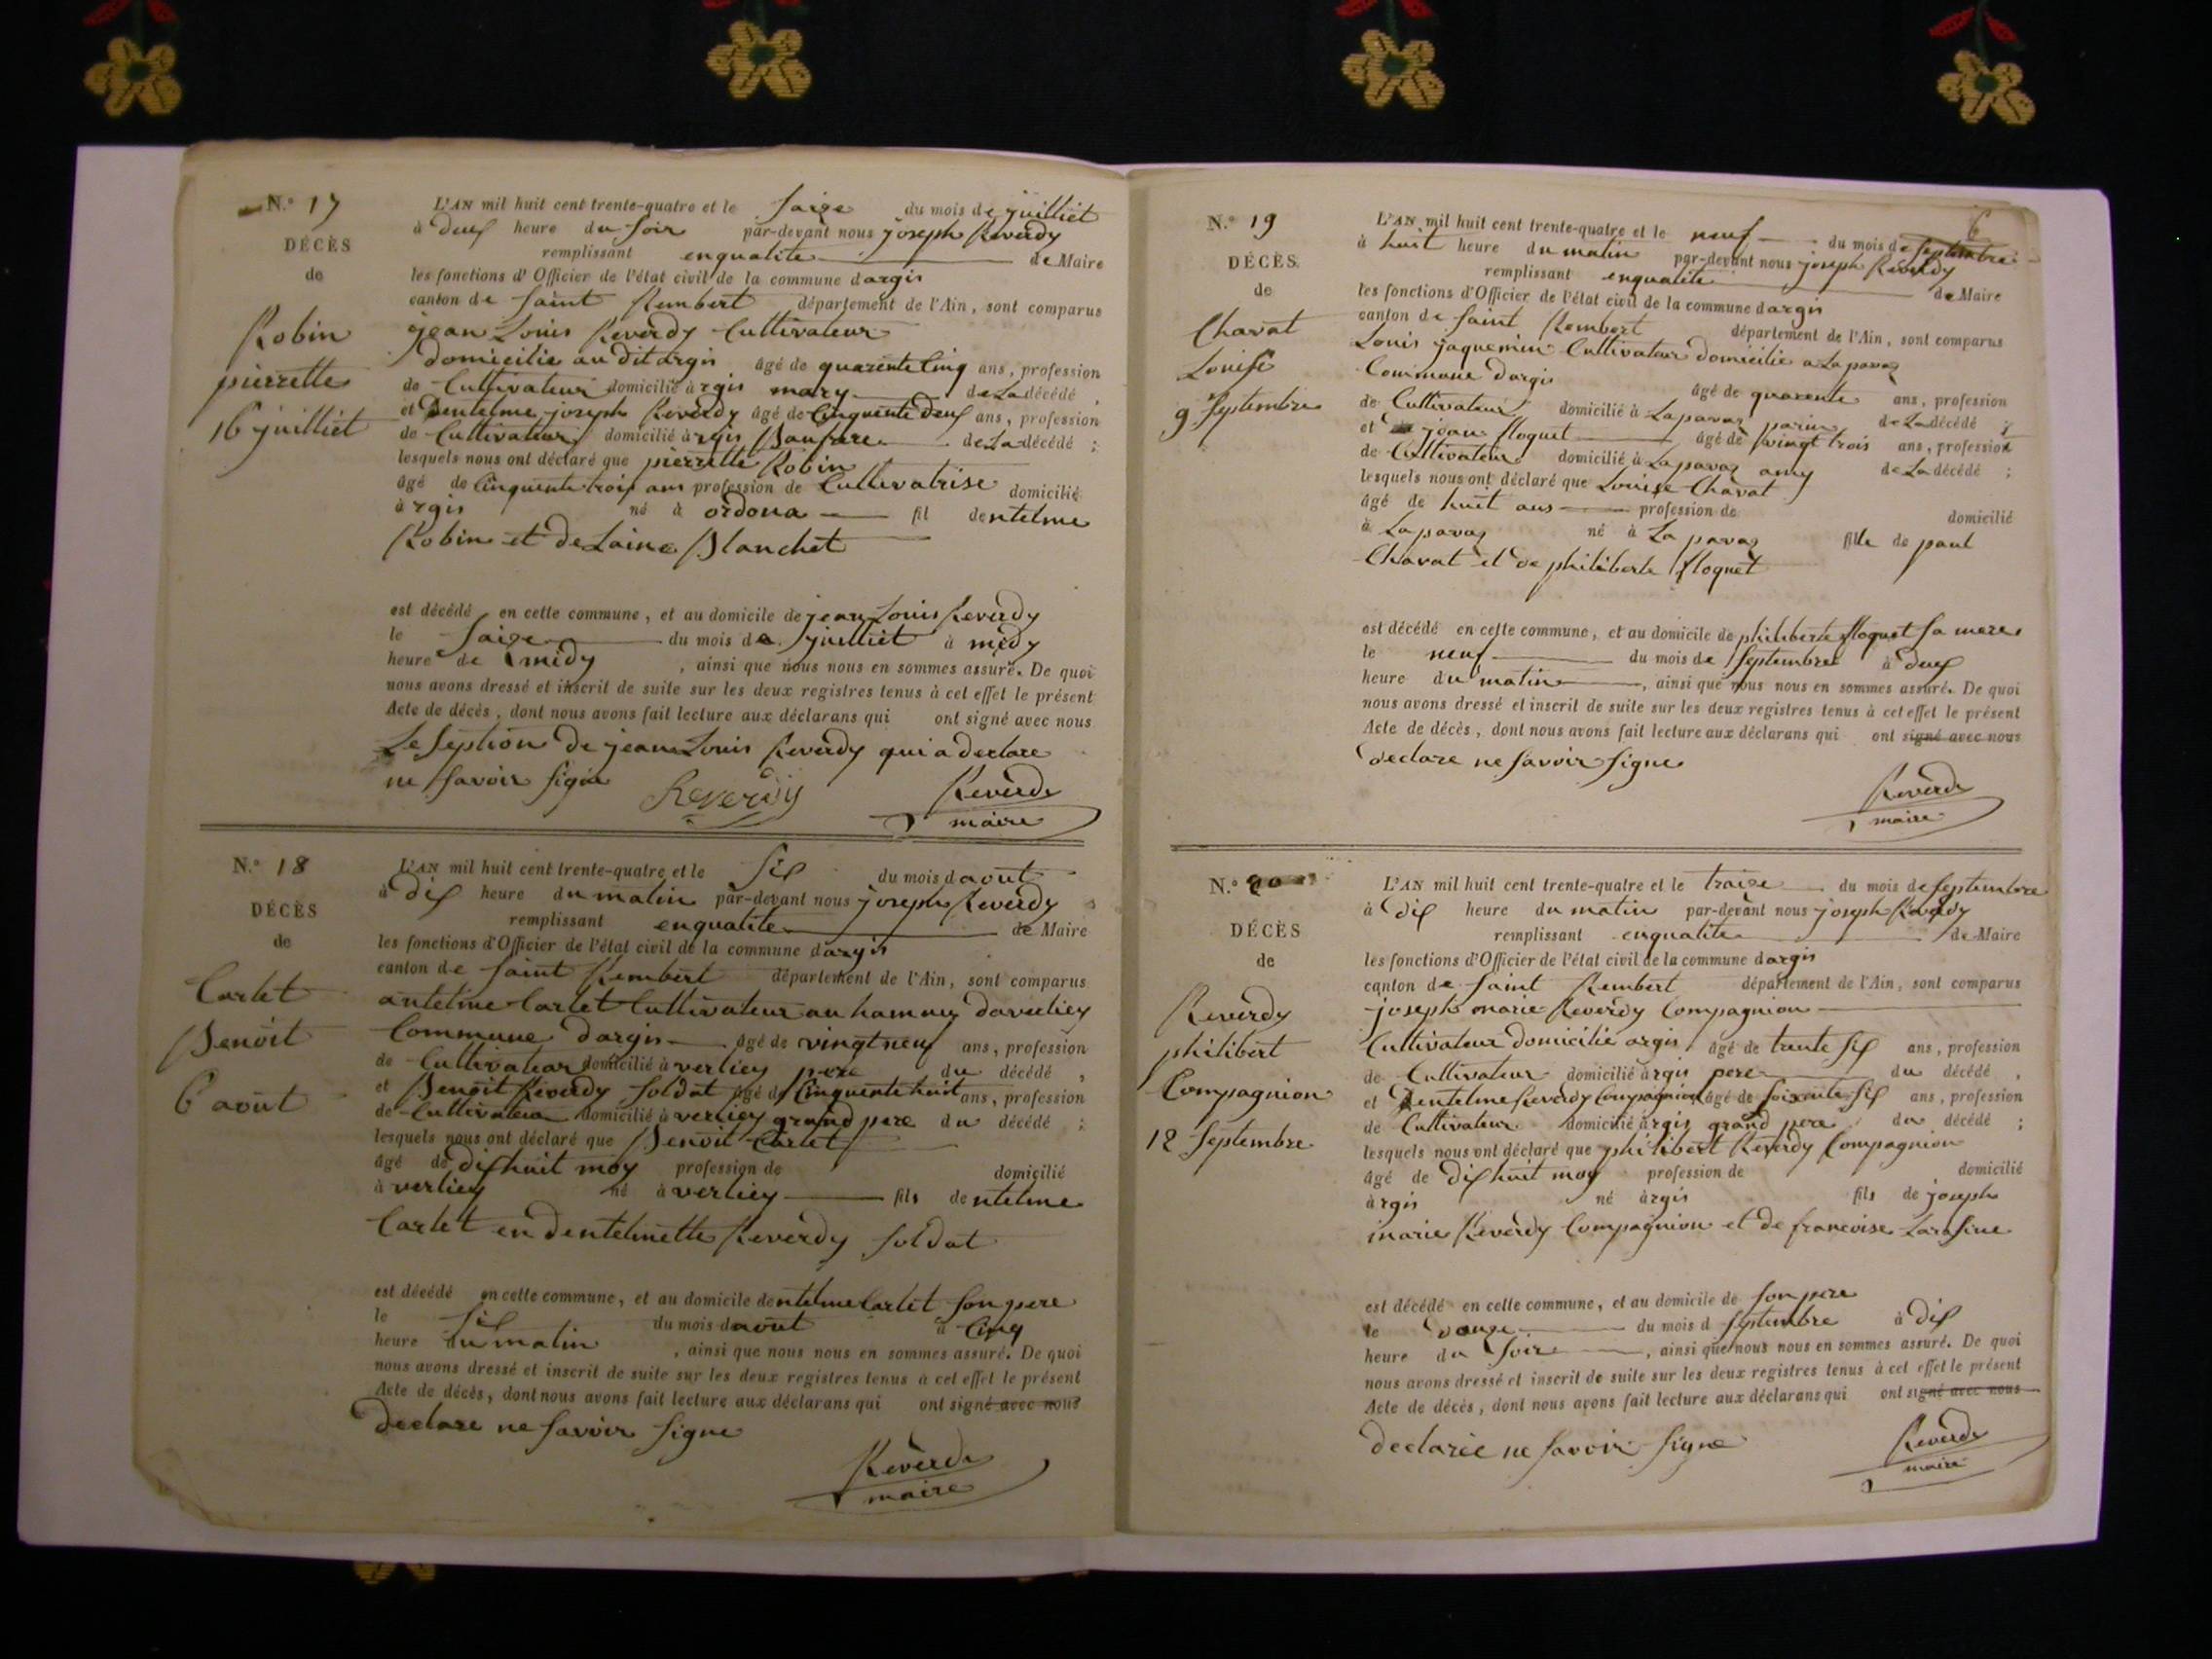 N.° 17
DÉCÈS
de
Robin
pierrette
16 juilliet
L'AN mil huit cent trente-quatre et le saize du mois de juilliet
à deux heure du soir par-devant nous joseph Reverdy
remplissant enqualite de Maire
les fonctions d'Officier de l'état civil de la commune dargis
canton de saint Rembert département de l'Ain, sont comparus
jean Louis Reverdy Cultivateur
domicilie au dit argis âgé de quarente Cinq ans, profession
de Cultivateur domicilié àrgis mary de La décédé,
et Dentelme joseph Reverdy âgé de Cinquente deux ans, profession
de Cultivateur domicilié àrgis Baufrere de La décédé;
lesquels nous ont déclaré que pierrette Robin
âgé de Cinquente trois ans profession de Cultivatrise domicilié
àrgis né à ordona fil dentelme
Robin et de Laine Blanchet
est décédé en cette commune, et au domicile de jean Louis Reverdy
le saize du mois de juilliet à midy
heure de midy, ainsi que nous nous en sommes assuré. De quoi
nous avons dressé et inscrit de suite sur les deux registres tenus à cet effet le présent
Acte de décès, dont nous avons fait lecture aux déclarans qui ont signé avec nous
Le seption de jean Louis Reverdy qui a declare
ne savoir signe
Reverdy
Reverdy
maire
N.° 18
DÉCÈS
de
Carlet
Benoit
6 août
L'AN mil huit cent trente-quatre et le six du mois d août
à dix heure du matin par-devant nous joseph Reverdy
remplissant enqualite de Maire
les fonctions d'Officier de l'état civil de la commune dargis
canton de saint Rembert département de l'Ain, sont comparus
antelme Carlet Cultivateur au hamau daverliey
Commune dargis âgé de vingt neuf ans, profession
de Cultivateur domicilié à verliey pere du décédé,
et Benoit Reverdy soldat âgé de Cinquente huit ans, profession
de Cultivateur domicilié à verliey grand pere du décédé;
lesquels nous ont déclaré que Benoit Carlet
âgé de dix huit moy profession de domicilié
à verliey né à verliey fils dentelme
Carlet en dentelmette Reverdy soldat
est décédé en cette commune, et au domicile dentelme Carlet son pere
le six du mois d août à Cinq
heure du matin, ainsi que nous nous en sommes assuré. De quoi
nous avons dressé et inscrit de suite sur les deux registres tenus à cet effet le présent
Acte de décès, dont nous avons fait lecture aux déclarans qui ont signé avec nous
declare ne savoir signe
Reverdy
maire
6
N.° 19
DÉCÈS
de
Chavat
Louise
9 septembre
L'AN mil huit cent trente-quatre et le neuf du mois de septembre
à huit heure du matin par-devant nous joseph Reverdy
remplissant enqualite de Maire
les fonctions d'Officier de l'état civil de la commune dargis
canton de saint Rembert département de l'Ain, sont comparus
Louis jaquemin Cultivateur domicilie a Lapavaz
Commune dargis âgé de quarente ans, profession
de Cultivateur domicilié à Lapavaz parin de La décédé,
et jean floquet âgé de vingt trois ans, profession
de Cultivateur domicilié à Lapavaz amy de La décédé;
lesquels nous ont déclaré que Louise Chavat
âgé de huit ans profession de domicilié
à Lapavaz né à La pavaz fille de paul
Chavat et de philiberte floquet
est décédé en cette commune, et au domicile de philiberte floquet sa mere
le neuf du mois de septembre à deux
heure du matin, ainsi que nous nous en sommes assuré. De quoi
nous avons dressé et inscrit de suite sur les deux registres tenus à cet effet le présent
Acte de décès, dont nous avons fait lecture aux déclarans qui ont signé avec nous
declare ne savoir signe
Reverdy
maire
N.° 20
DÉCÈS
de
Reverdy
philibert
Compagnion
12 septembre
L'AN mil huit cent trente-quatre et le traize du mois de septembre
à dix heure du matin par-devant nous joseph Reverdy
remplissant enqualite de Maire
les fonctions d'Officier de l'état civil de la commune dargis
canton de saint Rembert département de l'Ain, sont comparus
joseph marie Reverdy Compagnion
Cultivateur domicilié argis âgé de trente six ans, profession
de Cultivateur domicilié àrgis pere du décédé,
et Dentelme Reverdy Compagnion âgé de soixente six ans, profession
de Cultivateur domicilié àrgis grand pere du décédé;
lesquels nous ont déclaré que philibert Reverdy Compagnion
âgé de dix huit moy profession de domicilié
àrgis né àrgis fils de joseph
marie Reverdy Compagnion et de francoise
est décédé en cette commune, et au domicile de son pere
le douze du mois d septembre à dix
heure du soir, ainsi que nous nous en sommes assuré. De quoi
nous avons dressé et inscrit de suite sur les deux registres tenus à cet effet le présent
Acte de décès, dont nous avons fait lecture aux déclarans qui ont signé avec nous
declarée ne savoir signe
Reverdy
maire